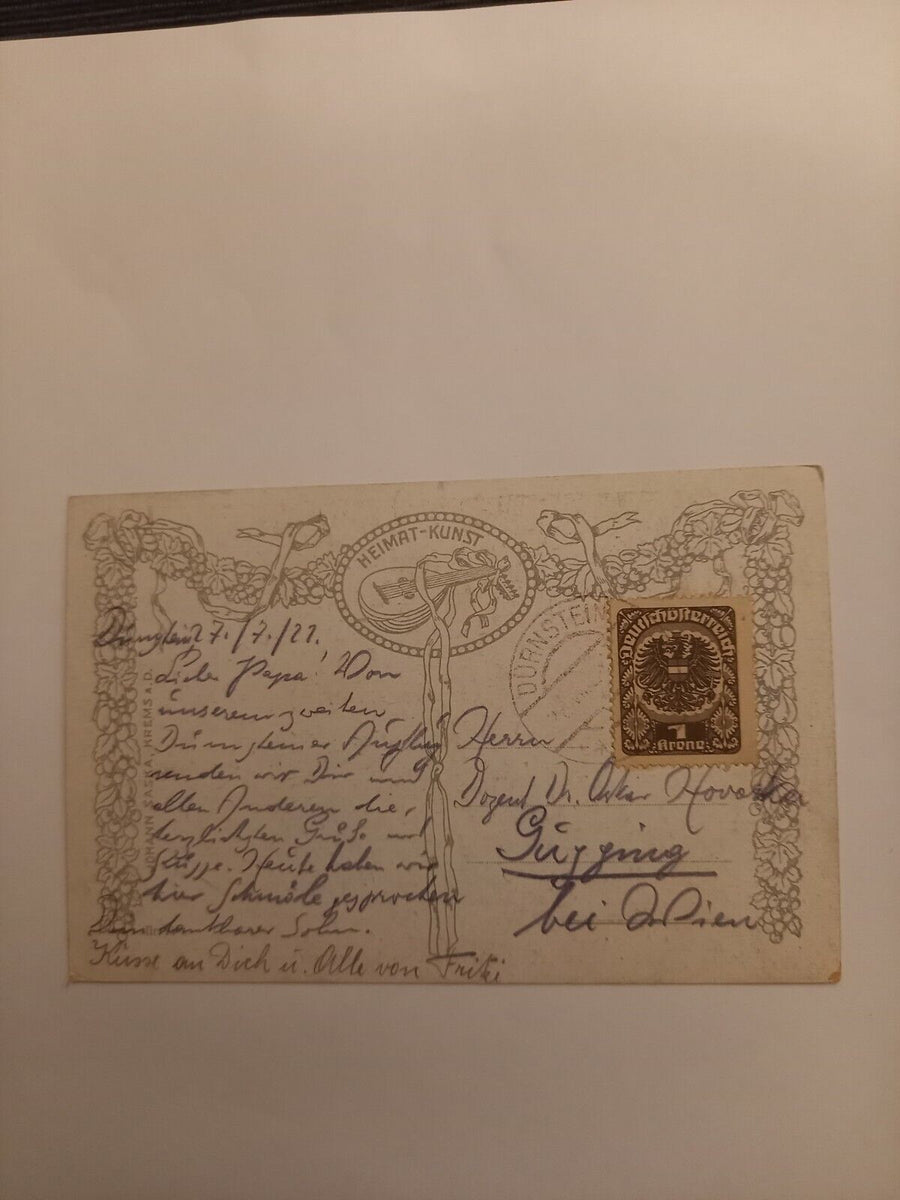 HEIMAT-KUNST
DÜRNSTEIN
Deutschösterreich
1
Krone
JOHANN SASKA, KREMS A.D.
27./7./21.
Lieber Papa! Von
unserem zweiten
Dürnsteiner Ausflug
senden wir Dir und
allen Anderen die
herzlichsten Grüße und
Küsse. Heute haben wir
hier gesprochen
Dein dankbarer Sohn.
Küsse an Dich u. Alle von Fritzi
Herrn
Dozent Dr. Oskar Hovorka
Gugging
bei Wien